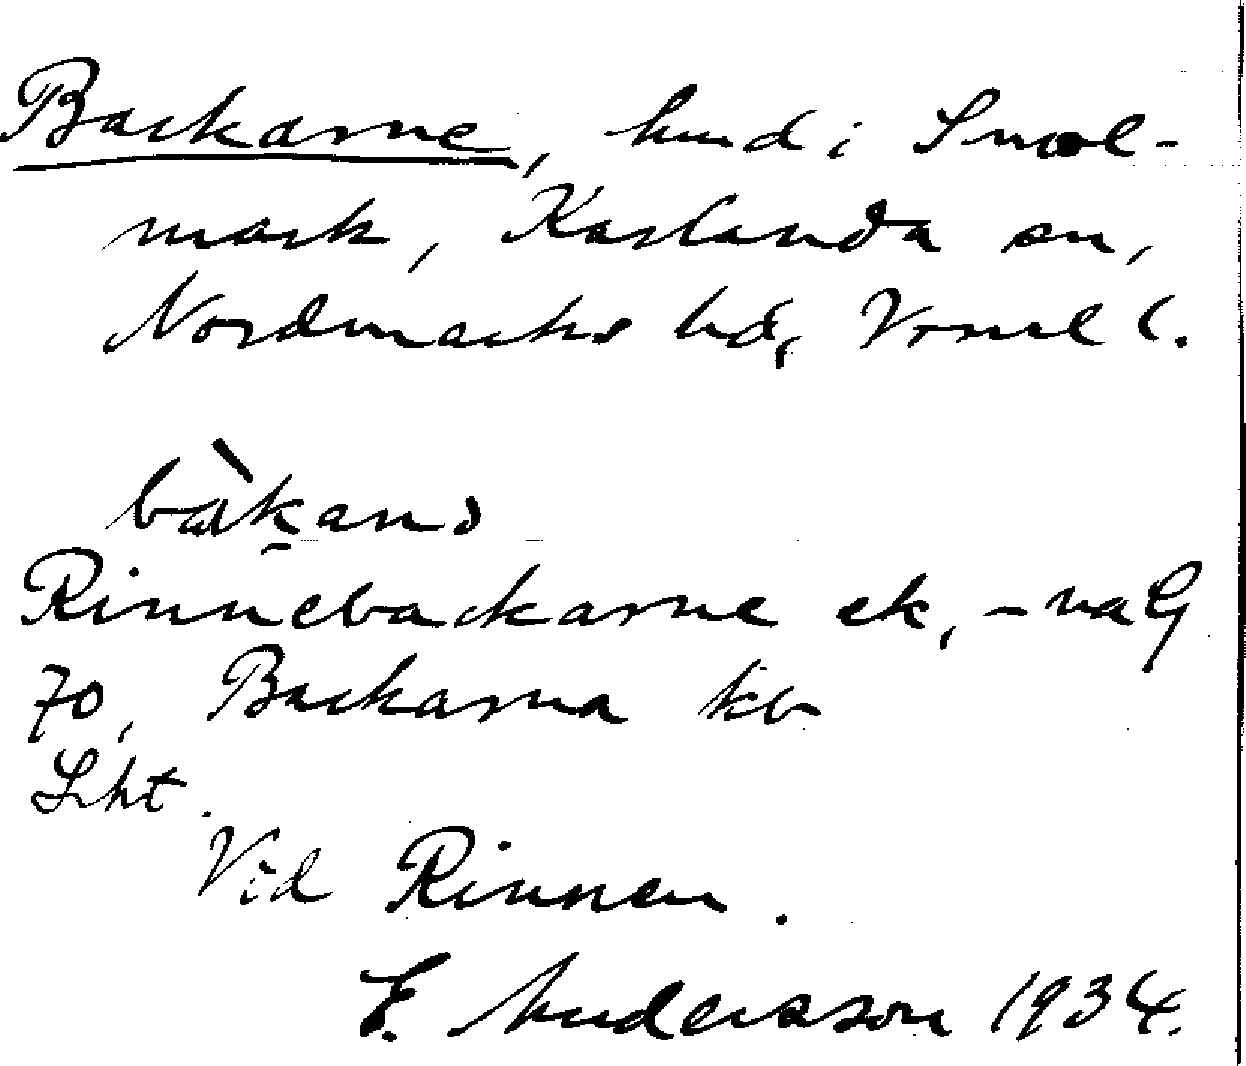 Backarne, hmd i Smol-
mark, Karlanda sn,
Nordmarks hd, Vrml l.
bàkană
Rinnebackarne ek, -na G
70, Backarna kb
Lht.
Vid Rinnen.
E. Andersson 1934.